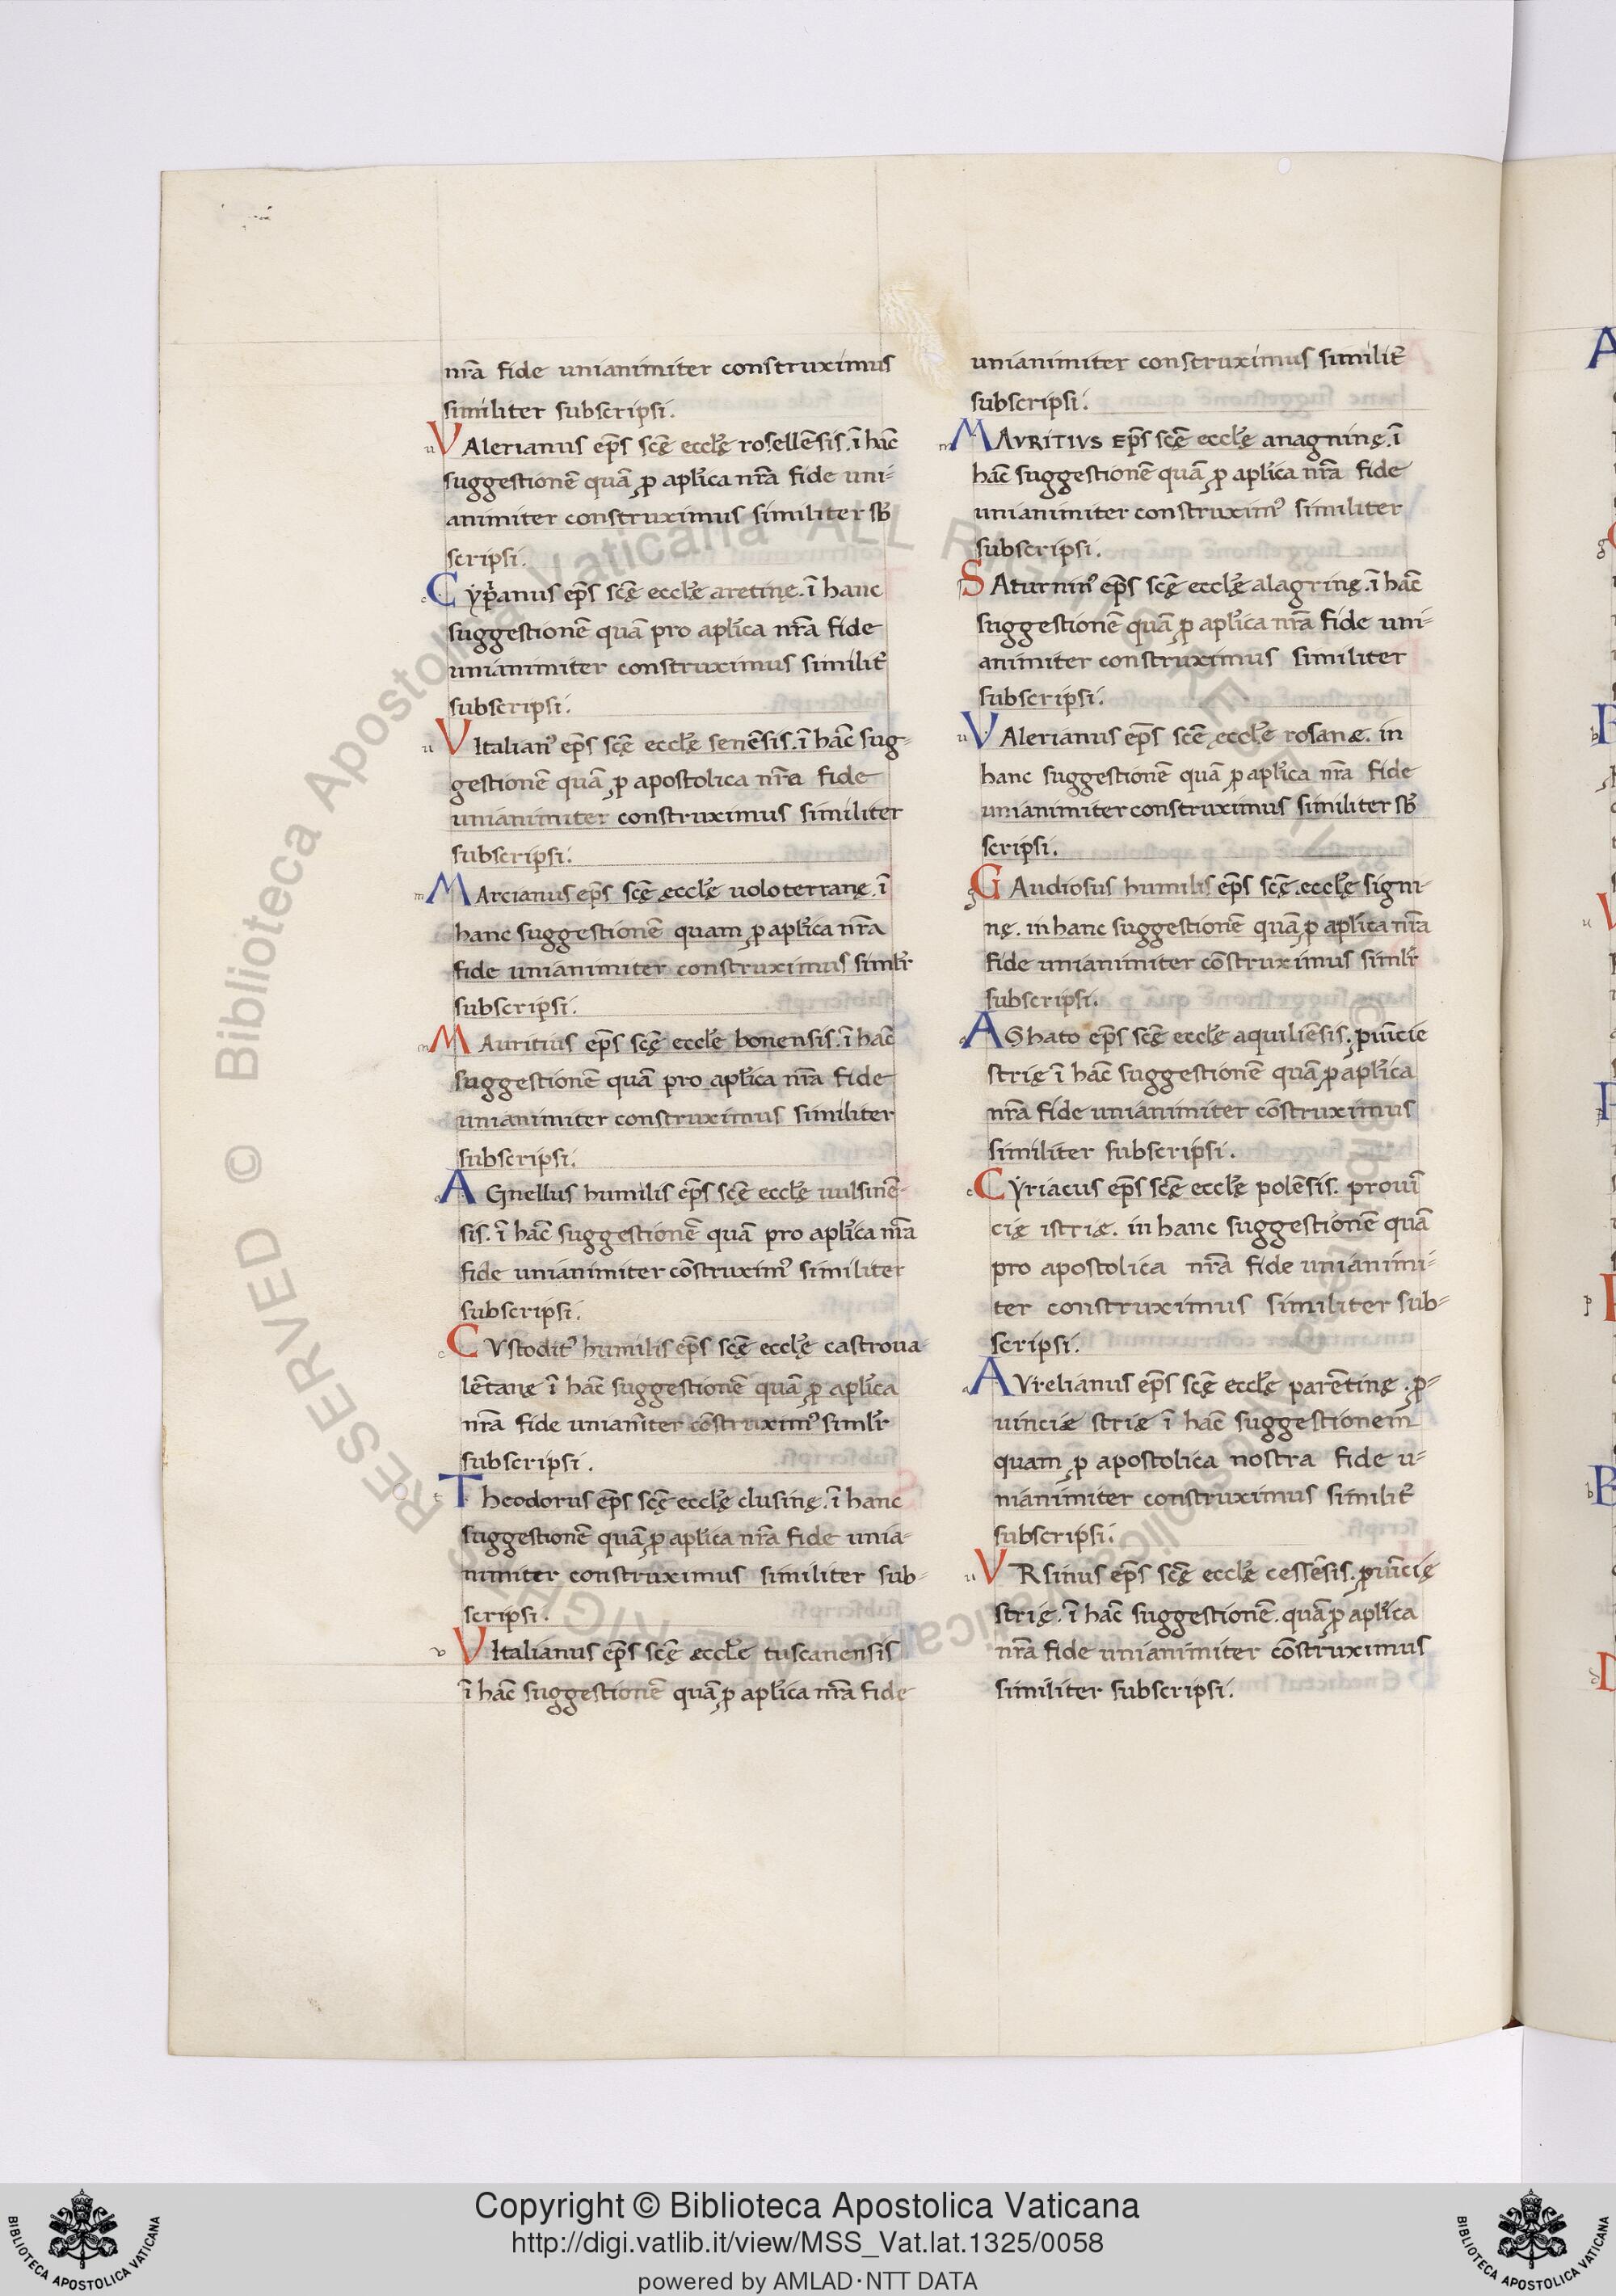 nr̃a fide unianimiter construximus
similiter subscripsi.
VAlerianus ep̃s scẽ eccl̃ę rosellẽsis. ĩ hãc
suggestionẽ quã ꝓ apl̃ica nr̃a fide uni-
animiter construximus similiter sb̃
scripsi.
Cyp̃anus ep̃s scę̃ eccl̃ę aretinę. ĩ hanc
suggestionẽ quã pro apl̃ica nr̃a fide
unianimiter construximus similit̃
subscripsi.
VItalianꝰ ep̃s scę̃ eccl̃ę senẽsis. ĩ hãc sug-
gestionẽ quã ꝓ apostolica nr̃a fide
unianimiter construximus similiter
subscripsi.
MArcianus ep̃s scę̃ eccl̃ę uoloterranę. ĩ
hanc suggestionẽ quam ꝓ apl̃ica nr̃a
fide unianimiter construximus siml̃r
subscripsi.
MAuritius ep̃s scę̃ eccl̃e bonensis. ĩ hãc
suggestionẽ quã pro apl̃ica nr̃a fide
unianimiter construximus similiter
subscripsi.
AGnellus humilis ep̃s scę̃ eccl̃ę uulsinẽ-
sis. ĩ hãc suggestionẽ quã pro apl̃ica nr̃a
fide unianimiter cõstruximꝰ similiter
subscripsi.
CVstoditꝰ humilis ep̃s scę̃ eccl̃ę castroua
lẽtanę ĩ hãc suggestionẽ quã ꝓ apl̃ica
nr̃a fide unianĩter cõstruximꝰ siml̃r
subscripsi.
Theodorus ep̃s scę̃ eccl̃ę clusinę. ĩ hanc
suggestionẽ quã ꝓ aplica nr̃a fide unia-
nimiter construximus similiter sub-
scripsi.
VItalianus ep̃s scę̃ eccl̃e tuscanensis
ĩ hãc suggestionẽ quã ꝓ apl̃ica nr̃a fide
unianimiter construximus similit̃
subscripsi.
MAVRITIVS Ep̃s scę̃ eccl̃ę anagninę. ĩ
hãc suggestionẽ quã ꝓ apl̃ica nr̃a fide
unianimiter construximꝰ similiter
subscripsi.
SAturninꝰ ep̃s scę̃ eccl̃ę alagrinę. ĩ hãc
suggestionẽ quã ꝓ apl̃ica nr̃a fide uni-
animiter construximus similiter
subscripsi.
VAlerianus ep̃s scẽ eccl̃ę rosanæ. in
hanc suggestionẽ quã ꝓ apl̃ica nr̃a fide
unianimiter construximus similiter sb̃
scripsi.
GAudiosus humilis ep̃s scę̃. eccl̃ę signi
nę. in hanc suggestionẽ quã ꝓ aplica nr̃a
fide unianimiter cõstruximus siml̃r
subscripsi.
AGhato ep̃s scę̃ eccl̃e aquiliẽsis. ꝓuĩcie
strię ĩ hãc suggestionẽ quã ꝓ apl̃ica
nr̃a fide unianimiter cõstruximus
similiter subscripsi.
Cyriacus ep̃s scę̃ eccl̃ę polẽsis. prouĩ
cię istrię. in hanc suggestionẽ quã
pro apostolica nr̃a fide unianimi-
ter construximus similiter sub-
scripsi.
AVrelianus ep̃s scę̃ eccl̃ę parẽtinę. ꝓ-
uinciæ strię ĩ hãc suggestionem
quam ꝓ apostolica nostra fide u-
nianimiter construximus similit̃
subscripsi.
VRsinus ep̃s scę̃ eccl̃ę cessẽsis. ꝓuĩcię
strię. ĩ hãc suggestionẽ. quã ꝓ apl̃ica
nr̃a fide unianimiter cõstruximus
similiter subscripsi.
Biblioteca Apostolica Vaticana ALL RIGHTS RESERVED ©
Copyright © Biblioteca Apostolica Vaticana
http://digi.vatlib.it/view/MSS_Vat.lat.1325/0058
powered by AMLAD·NTT DATA
BIBLIOTECA APOSTOLICA VATICANA
BIBLIOTECA APOSTOLICA VATICANA